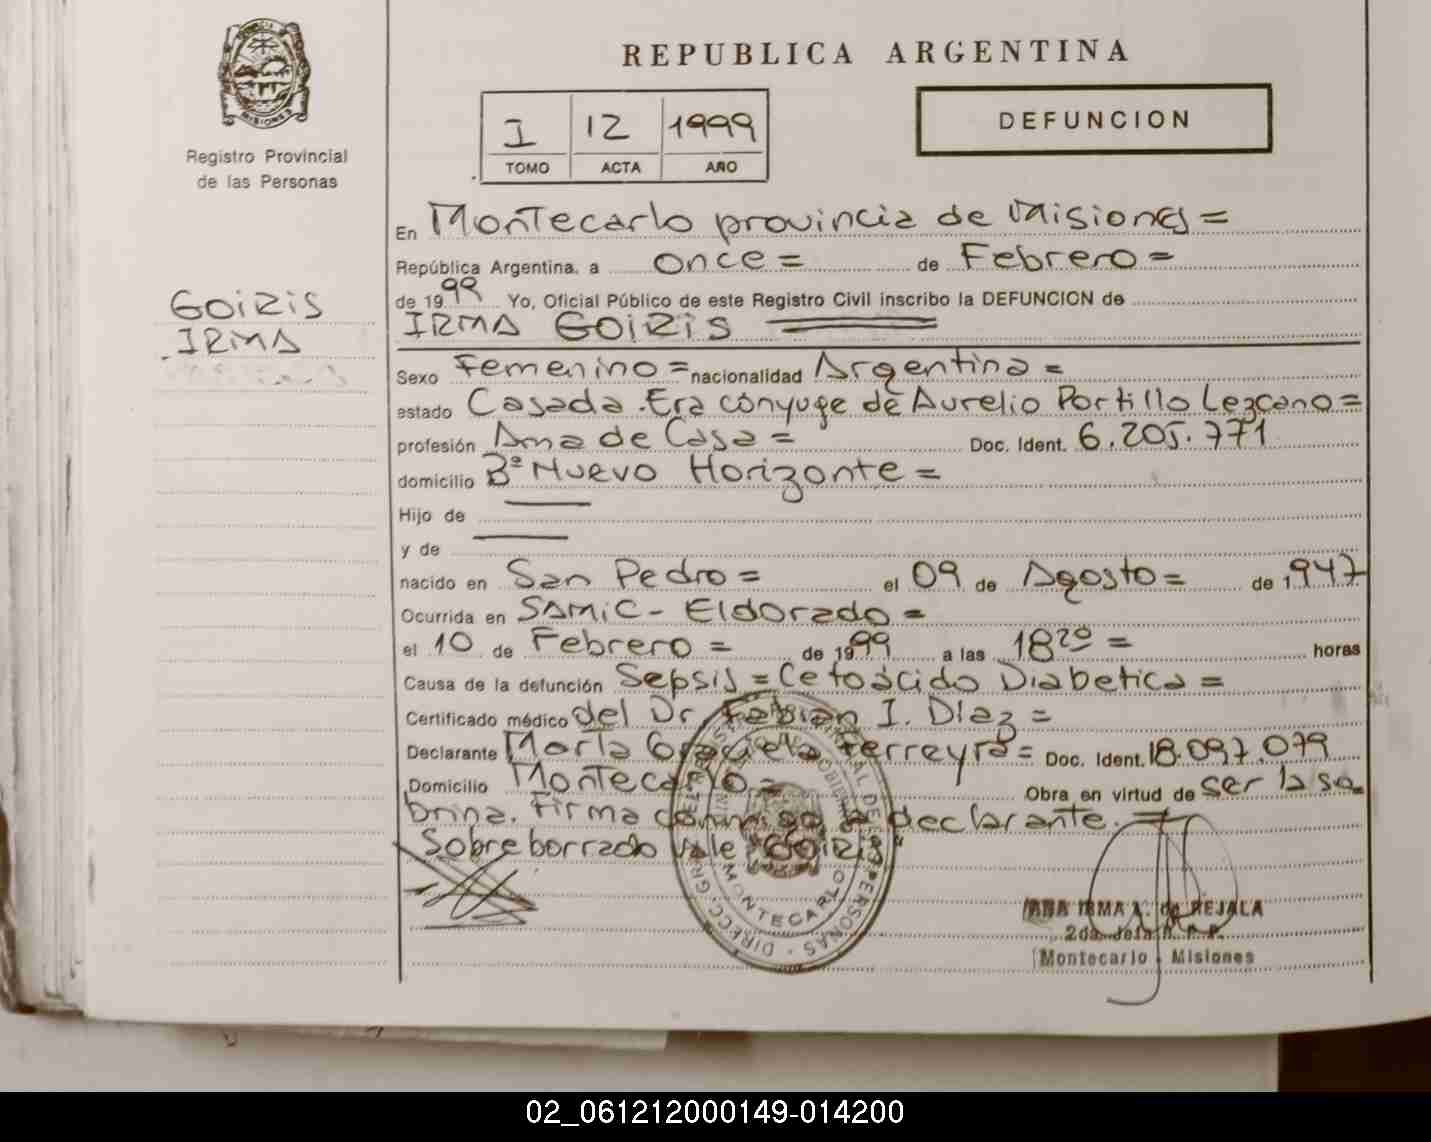 REPUBLICA ARGENTINA
I 12 1999
TOMO ACTA AÑO
DEFUNCION
MISIONES
Registro Provincial
de las Personas
GOIRIS
IRMA
En Montecarlo provincia de Misiones =
República Argentina, a once = de Febrero =
de 1999 Yo, Oficial Público de este Registro Civil inscribo la DEFUNCION de
IRMA GOIRIS
Sexo Femenino = nacionalidad Argentina =
estado Casada. Era cónyuge de Aurelio Portillo Lezcano =
profesión Ama de Casa = Doc. Ident. 6.205.771
domicilio Bº Nuevo Horizonte =
Hijo de
y de
nacido en San Pedro = el 09 de Agosto = de 1947
Ocurrida en SAMIC - Eldorado =
el 10 de Febrero = de 1999 a las 18 20 = horas
Causa de la defunción Sepsis = Cetoácido Diabetica =
Certificado médico del Dr. Fabian I. Diaz =
Declarante Marta Graciela Ferreyra = Doc. Ident. 18.097.079
Domicilio Montecarlo = Obra en virtud de ser la so
brina. Firma conmigo la declarante. =
Sobreborrado vale "Goiris"
MONTECARLO
IRMA de REJALA
2da. Jefa R. P. P.
Montecarlo - Misiones
02_061212000149-014200